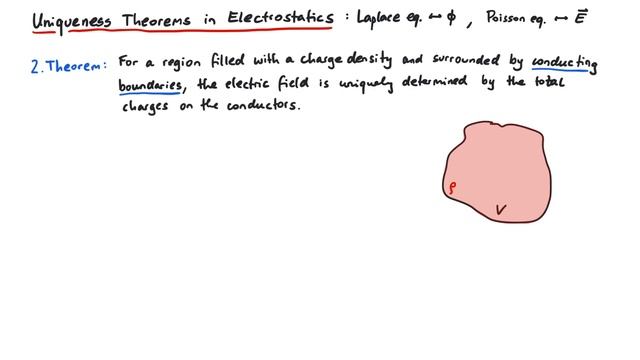 Uniqueness Theorems in Electrostatics : Laplace eq. ↔ ϕ , Poisson eq. ↔ E⃗
2. Theorem: For a region filled with a charge density and surrounded by conducting
boundaries, the electric field is uniquely determined by the total
charges on the conductors.
ρ
V